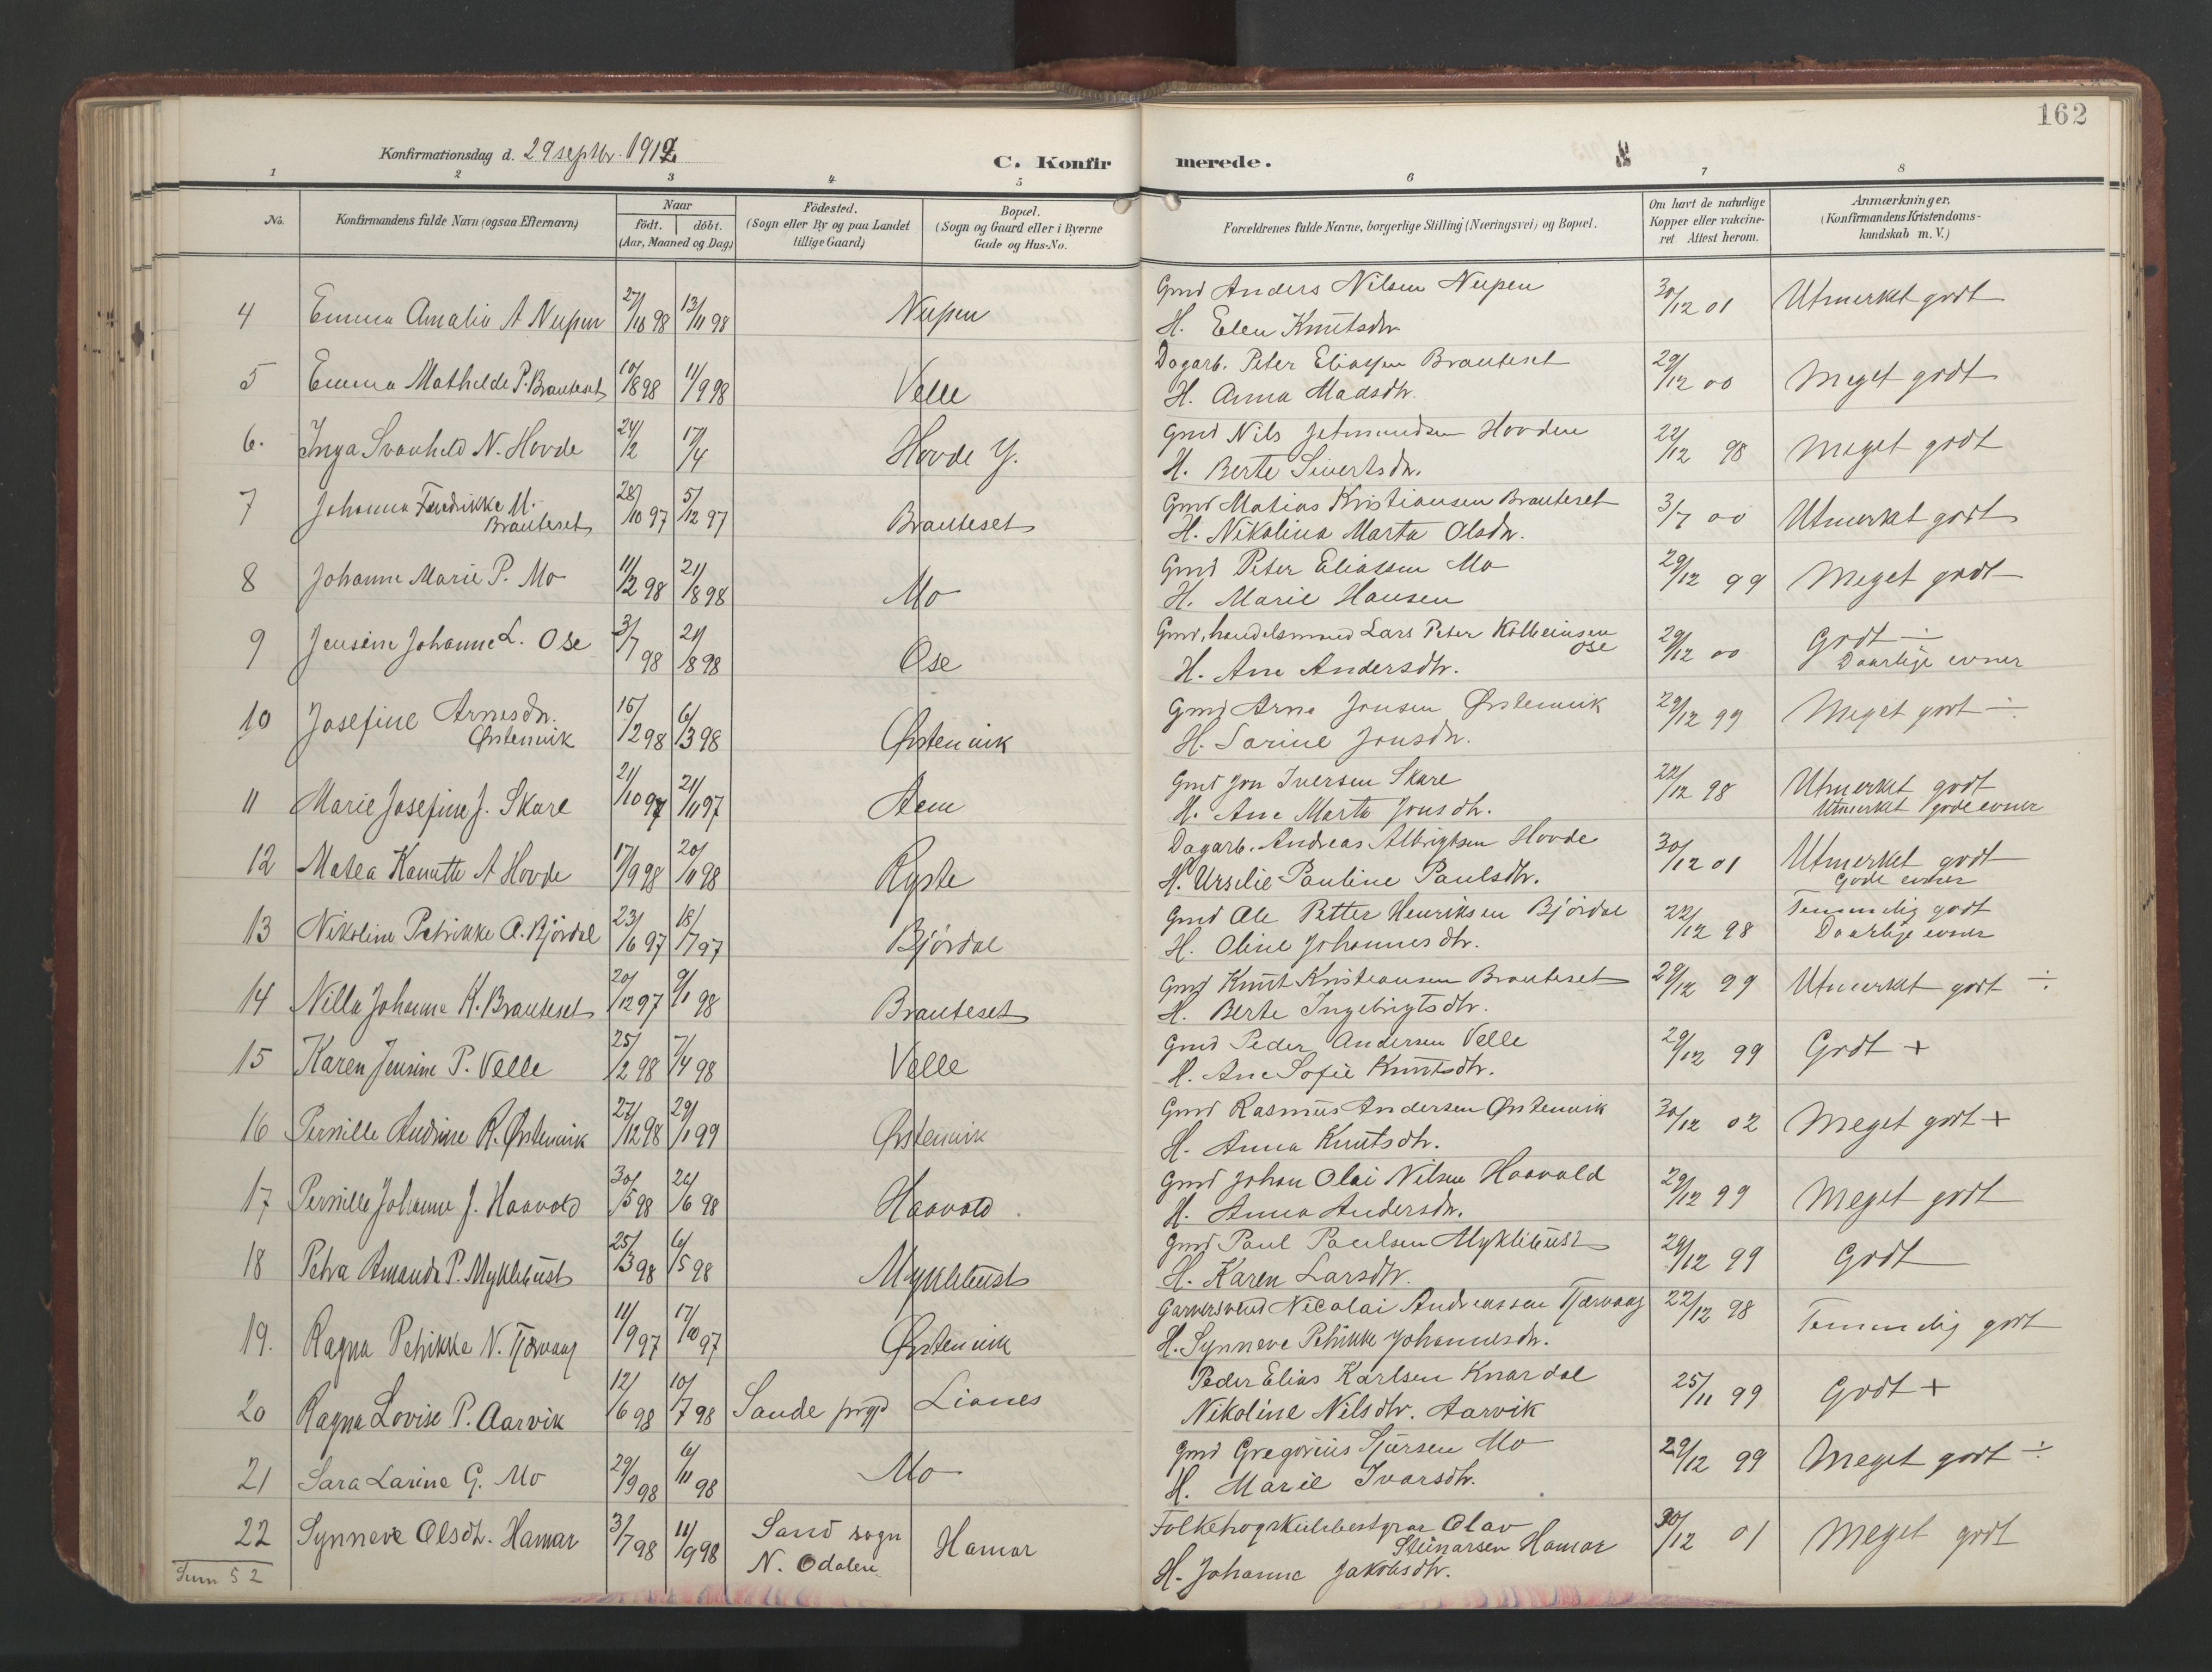 162
Konfirmationsdag d. 29 septbr. 1912
C. Konfirmerede.
1 2 3 4 5 6 7 8
No.
Konfirmandens fulde Navn (ogsaa Efternavn)
Naar
födt. döbt.
(Aar, Maaned og Dag)
Födested.
(Sogn eller By og paa Landet
tillige Gaard)
Bopæl.
(Sogn og Gaard eller i Byerne
Gade og Hus-No.
Forældrenes fulde Navne, borgerlige Stilling (Næringsvei) og Bopæl.
Om havt de naturlige
Kopper eller vakcine-
ret Attest herom.
Anmærkninger,
(Konfirmandens Kristendoms-
kundskab m. V.)
4 Emma Amalia A Nupen 27/10 98 13/11 98 Nupen Gmd Anders Nilsen Nupen 30/12 01 Utmerket godt
H. Elen Knutsdtr
5 Emma Mathilde P. Brauteset 10/8 98 11/9 98 Velle Dagarb. Peter Eliassen Brauteset 29/12 00 Meget godt
H. Anna Madsdtr.
6. Inga Svanhild N. Hovde 24/2 17/4 Hovde Y. Gmd Nils Jetmundsen Hovden 22/12 98 Meget godt
H. Berte Sivertsdtr.
7 Johanna Fredrikke M.
Brauteset 28/10 97 5/12 97 Brauteset Gmd Matias Kristiansen Brauteset 3/7 00 Utmerket godt
H. Nikolina Marta Olsdtr.
8 Johanne Marie P. Mo 11/2 98 21/8 98 Mo Gmd Peter Eliassen Mo 29/12 99 Meget godt
H. Marie Hansen
9 Jensine Johanne L. Ose 3/7 98 21/8 98 Ose Gmd, handelsmand Lars Peter Kolbeinsen
Ose 29/12 00 Godt ÷
H. Ane Andersdtr. Daarlige evner
10 Josefine Arnesdtr.
Ørstenvik 15/12 98 6/3 98 Ørstenvik Gmd Arne Jonsen Ørstenvik 29/12 99 Meget godt ÷
H. Sarine Jonsdtr.
11 Marie Josefine J. Skare 21/10 97 21/11 97 Aem Gmd Jon Iversen Skare 22/12 98 Utmerket godt
H. Ane Marta Jonsdtr. Utmerket gode evner
12 Matea Kanutte A Hovde 17/9 98 20/11 98 Ryste Dagarb. Andreas Albrigtsen Hovde 30/12 01 Utmerket godt
H. Urselie Pauline Paulsdtr. Gode evner
13 Nikoline Petrikke O. Björdal 23/6 97 18/7 97 Björdal Gmd Ole Petter Henriksen Björdal 22/12 98 Temmelig godt
H. Oline Johannesdtr. Daarlige evner
14 Nilla Johanna K. Brauteset 20/12 97 9/1 98 Brauteset Gmd Knut Kristiansen Brauteset 29/12 99 Utmerket godt ÷
H. Berte Ingebrigtsdtr.
15 Karen Jensine P. Velle 25/2 98 7/4 98 Velle Gmd Peder Andersen Velle 29/12 99 Godt +
H. Ane Sofie Knutsdtr.
16 Pernille Andrine R. Ørstenvik 27/12 98 29/1 99 Ørstenvik Gmd Rasmus Andersen Ørstenvik 30/12 02 Meget godt +
H. Anna Knutsdtr.
17 Pernille Johanne J. Haavold 30/5 98 26/6 98 Haavold. Gmd Johan Olai Nilsen Haavald 29/12 99 Meget godt
H. Anna Andersdtr.
18 Petra Amanda P. Myklebust 25/3 98 6/5 98 Myklebust Gmd Paul Paulsen Myklebust 29/12 99 Godt
H. Karen Larsdtr.
19. Ragna Petrikke N. Tjærvaag 11/9 97 17/10 97 Ørstenvik Garversvend Nicolai Andreassen Tjærvaag 22/12 98 Temmelig godt
H. Synneve Petrikke Johannesdtr.
20 Ragna Lovise P. Aarvik 12/6 98 10/7 98 Sande prgjd Lianes Peder Elias Karlsen Knardal 25/11 99 Godt +
Nikoline Nilsdtr. Aarvik
21 Sara Larine G. Mo 29/9 98 6/11 98 Mo Gmd Gregorius Sjursen Mo 29/12 99 Meget godt ÷
H. Marie Ivarsdtr.
22 Synneve Olsdtr. Hamar 3/7 98 11/9 98 Sand sogn
N. Odalen Hamar Folkehogskulebestyrar Olav
Steinarsen Hamar 30/12 01 Meget godt
H. Johanne Jakobsdtr.
Sum 52